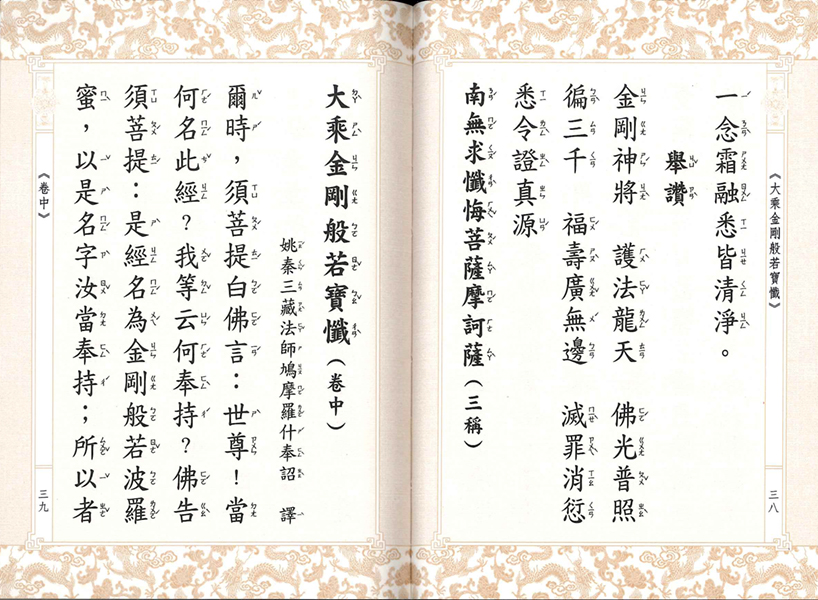 《大乘金剛般若寶懺》
三八
一念霜融悉皆清淨。
舉讚
金剛神將　護法龍天　佛光普照
徧三千　福壽廣無邊　滅罪消愆
悉令證真源
南無求懺悔菩薩摩訶薩（三稱）
大乘金剛般若寶懺（卷中）
姚秦三藏法師鳩摩羅什奉詔　譯
爾時，須菩提白佛言：世尊！當
何名此經？我等云何奉持？佛告
須菩提：是經名為金剛般若波羅
蜜，以是名字汝當奉持；所以者
《卷中》
三九